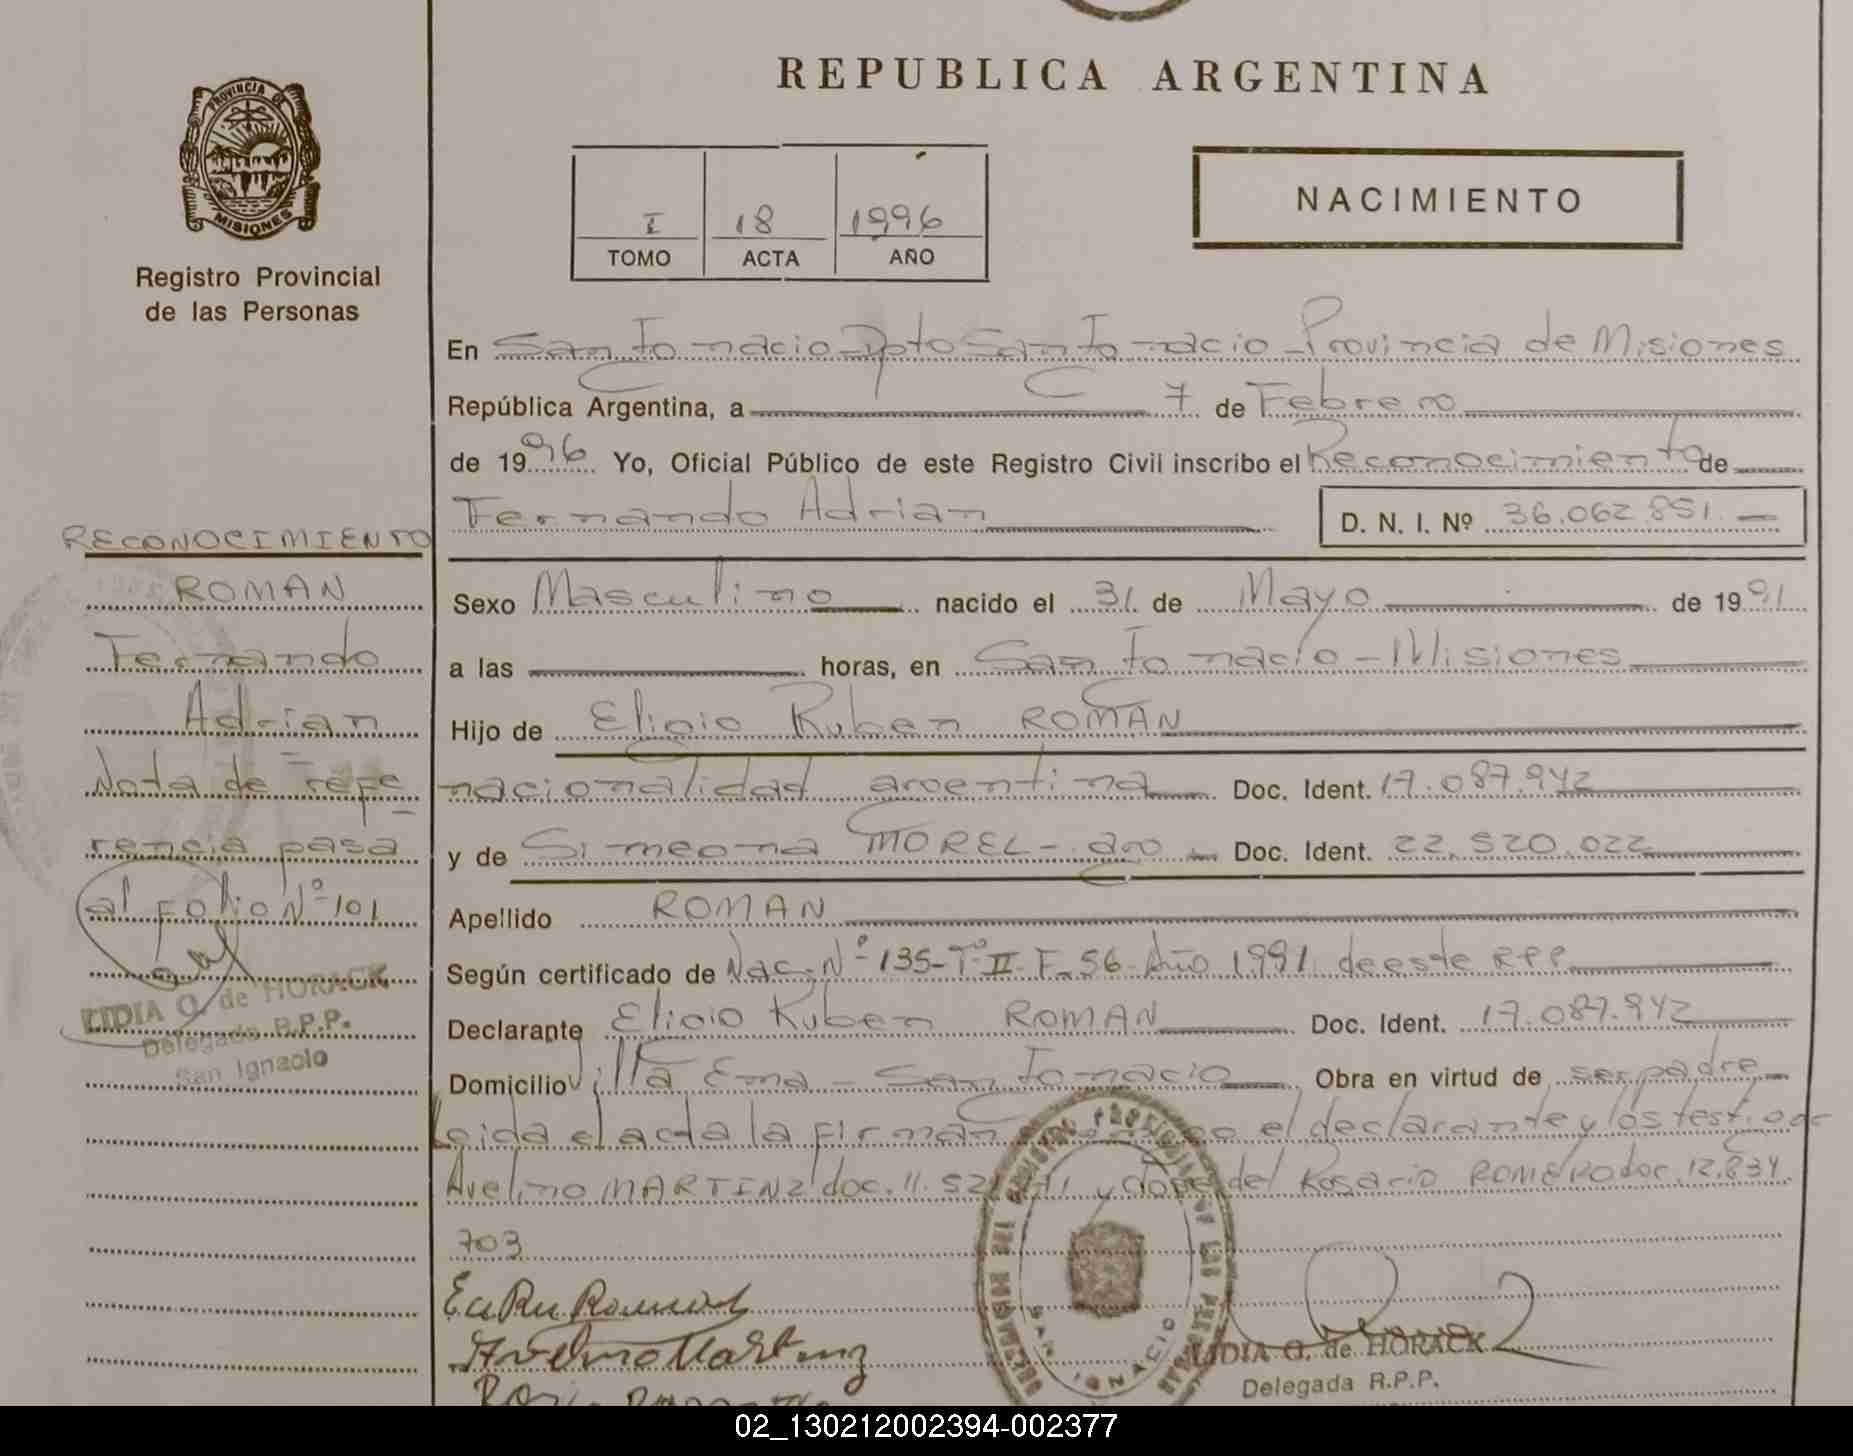 REPUBLICA ARGENTINA
PROVINCIA DE
MISIONES
Registro Provincial
de las Personas
I 18 1996
TOMO ACTA AÑO
NACIMIENTO
En San Ignacio Dpto San Ignacio - Provincia de Misiones
República Argentina, a 7 de Febrero
de 1996 Yo, Oficial Público de este Registro Civil inscribo el Reconocimiento de
Fernando Adrian
D. N. I. Nº 36.062.851
Sexo Masculino nacido el 31 de Mayo de 1991
a las horas, en San Ignacio - Misiones
Hijo de Eligio Ruben ROMAN
nacionalidad argentina Doc. Ident. 17.087.942
y de Simeona MOREL - arg Doc. Ident. 22.520.022
Apellido ROMAN
Según certificado de Nac. Nº 135 - Tº II - F. 56 - Año 1991 de este RPP
Declarante Eligio Ruben ROMAN Doc. Ident. 17.087.942
Domicilio Villa Ema - San Ignacio Obra en virtud de ser padre
Leida el acta la firman el declarante y los testigos
Avelino MARTINZ doc. 11. y del Rosario ROMERO doc. 12.834.
703
RECONOCIMIENTO
ROMAN
Fernando
Adrian
Nota de refe
rencia pasa
al Folio Nº 101
LIDIA O. de HORACK
Delegada R.P.P.
San Ignacio
SAN IGNACIO
LIDIA O. de HORACK
Delegada R.P.P.
02_130212002394-002377